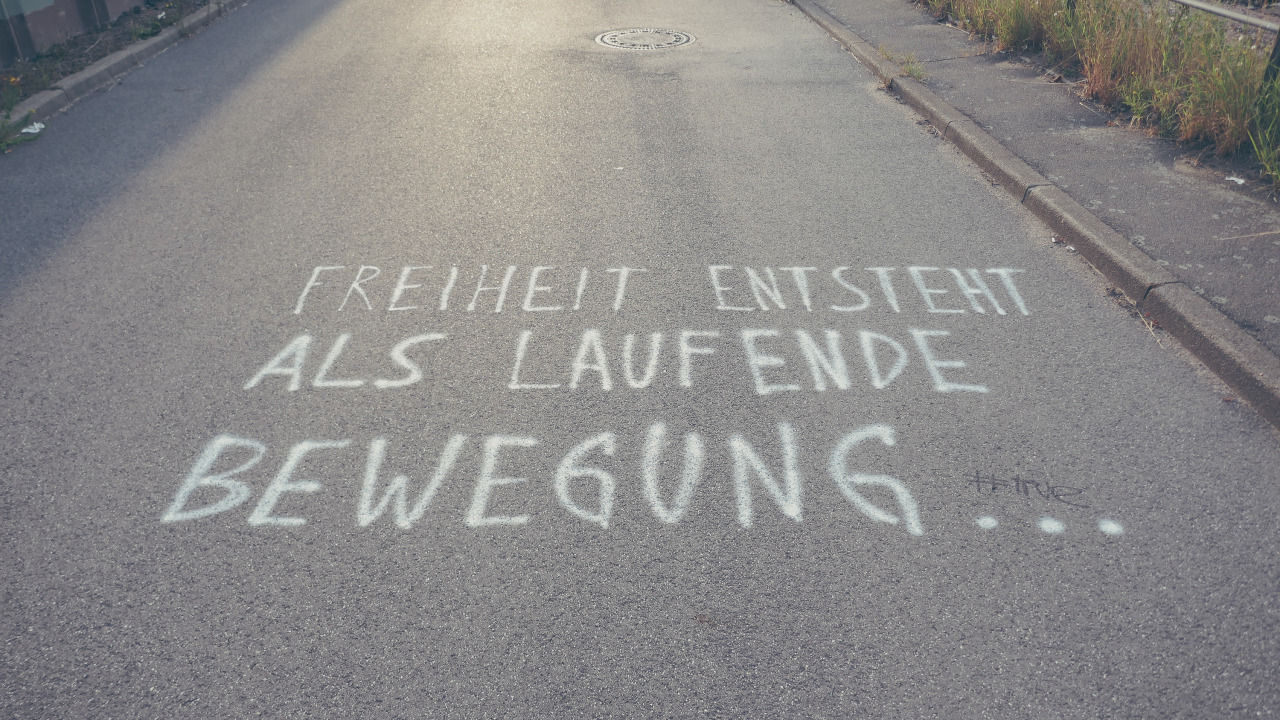 FREIHEIT ENTSTEHT
ALS LAUFENDE
BEWEGUNG...